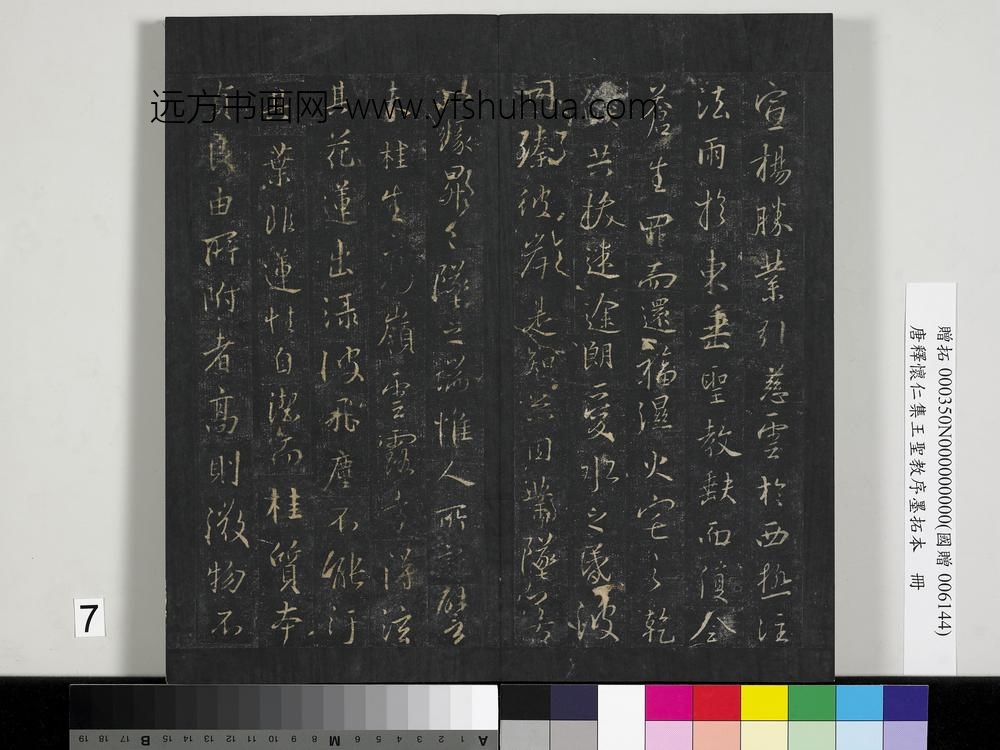 宣楊勝業引慈雲於西極注
法雨於東垂聖教缺而復全
蒼生罪而還福濕火宅之乾
焰共拔迷途朗愛水之昏波
同臻彼岸是知惡因業墜善
以緣昇々墜之端惟人所託譬
夫桂生高嶺雲露方得泫
其花蓮出淥波飛塵不能汙
其葉非蓮性自潔而桂質本
貞良由所附者高則微物不
远方书画网-www.yfshuhua.com
贈拓 000350N000000000(國贈 006144)
唐釋懷仁集王聖教序墨拓本 冊
7
19 18 17 B 16 15 14 13 12 11 10 9 M 8 7 6 5 4 3 2 1 A